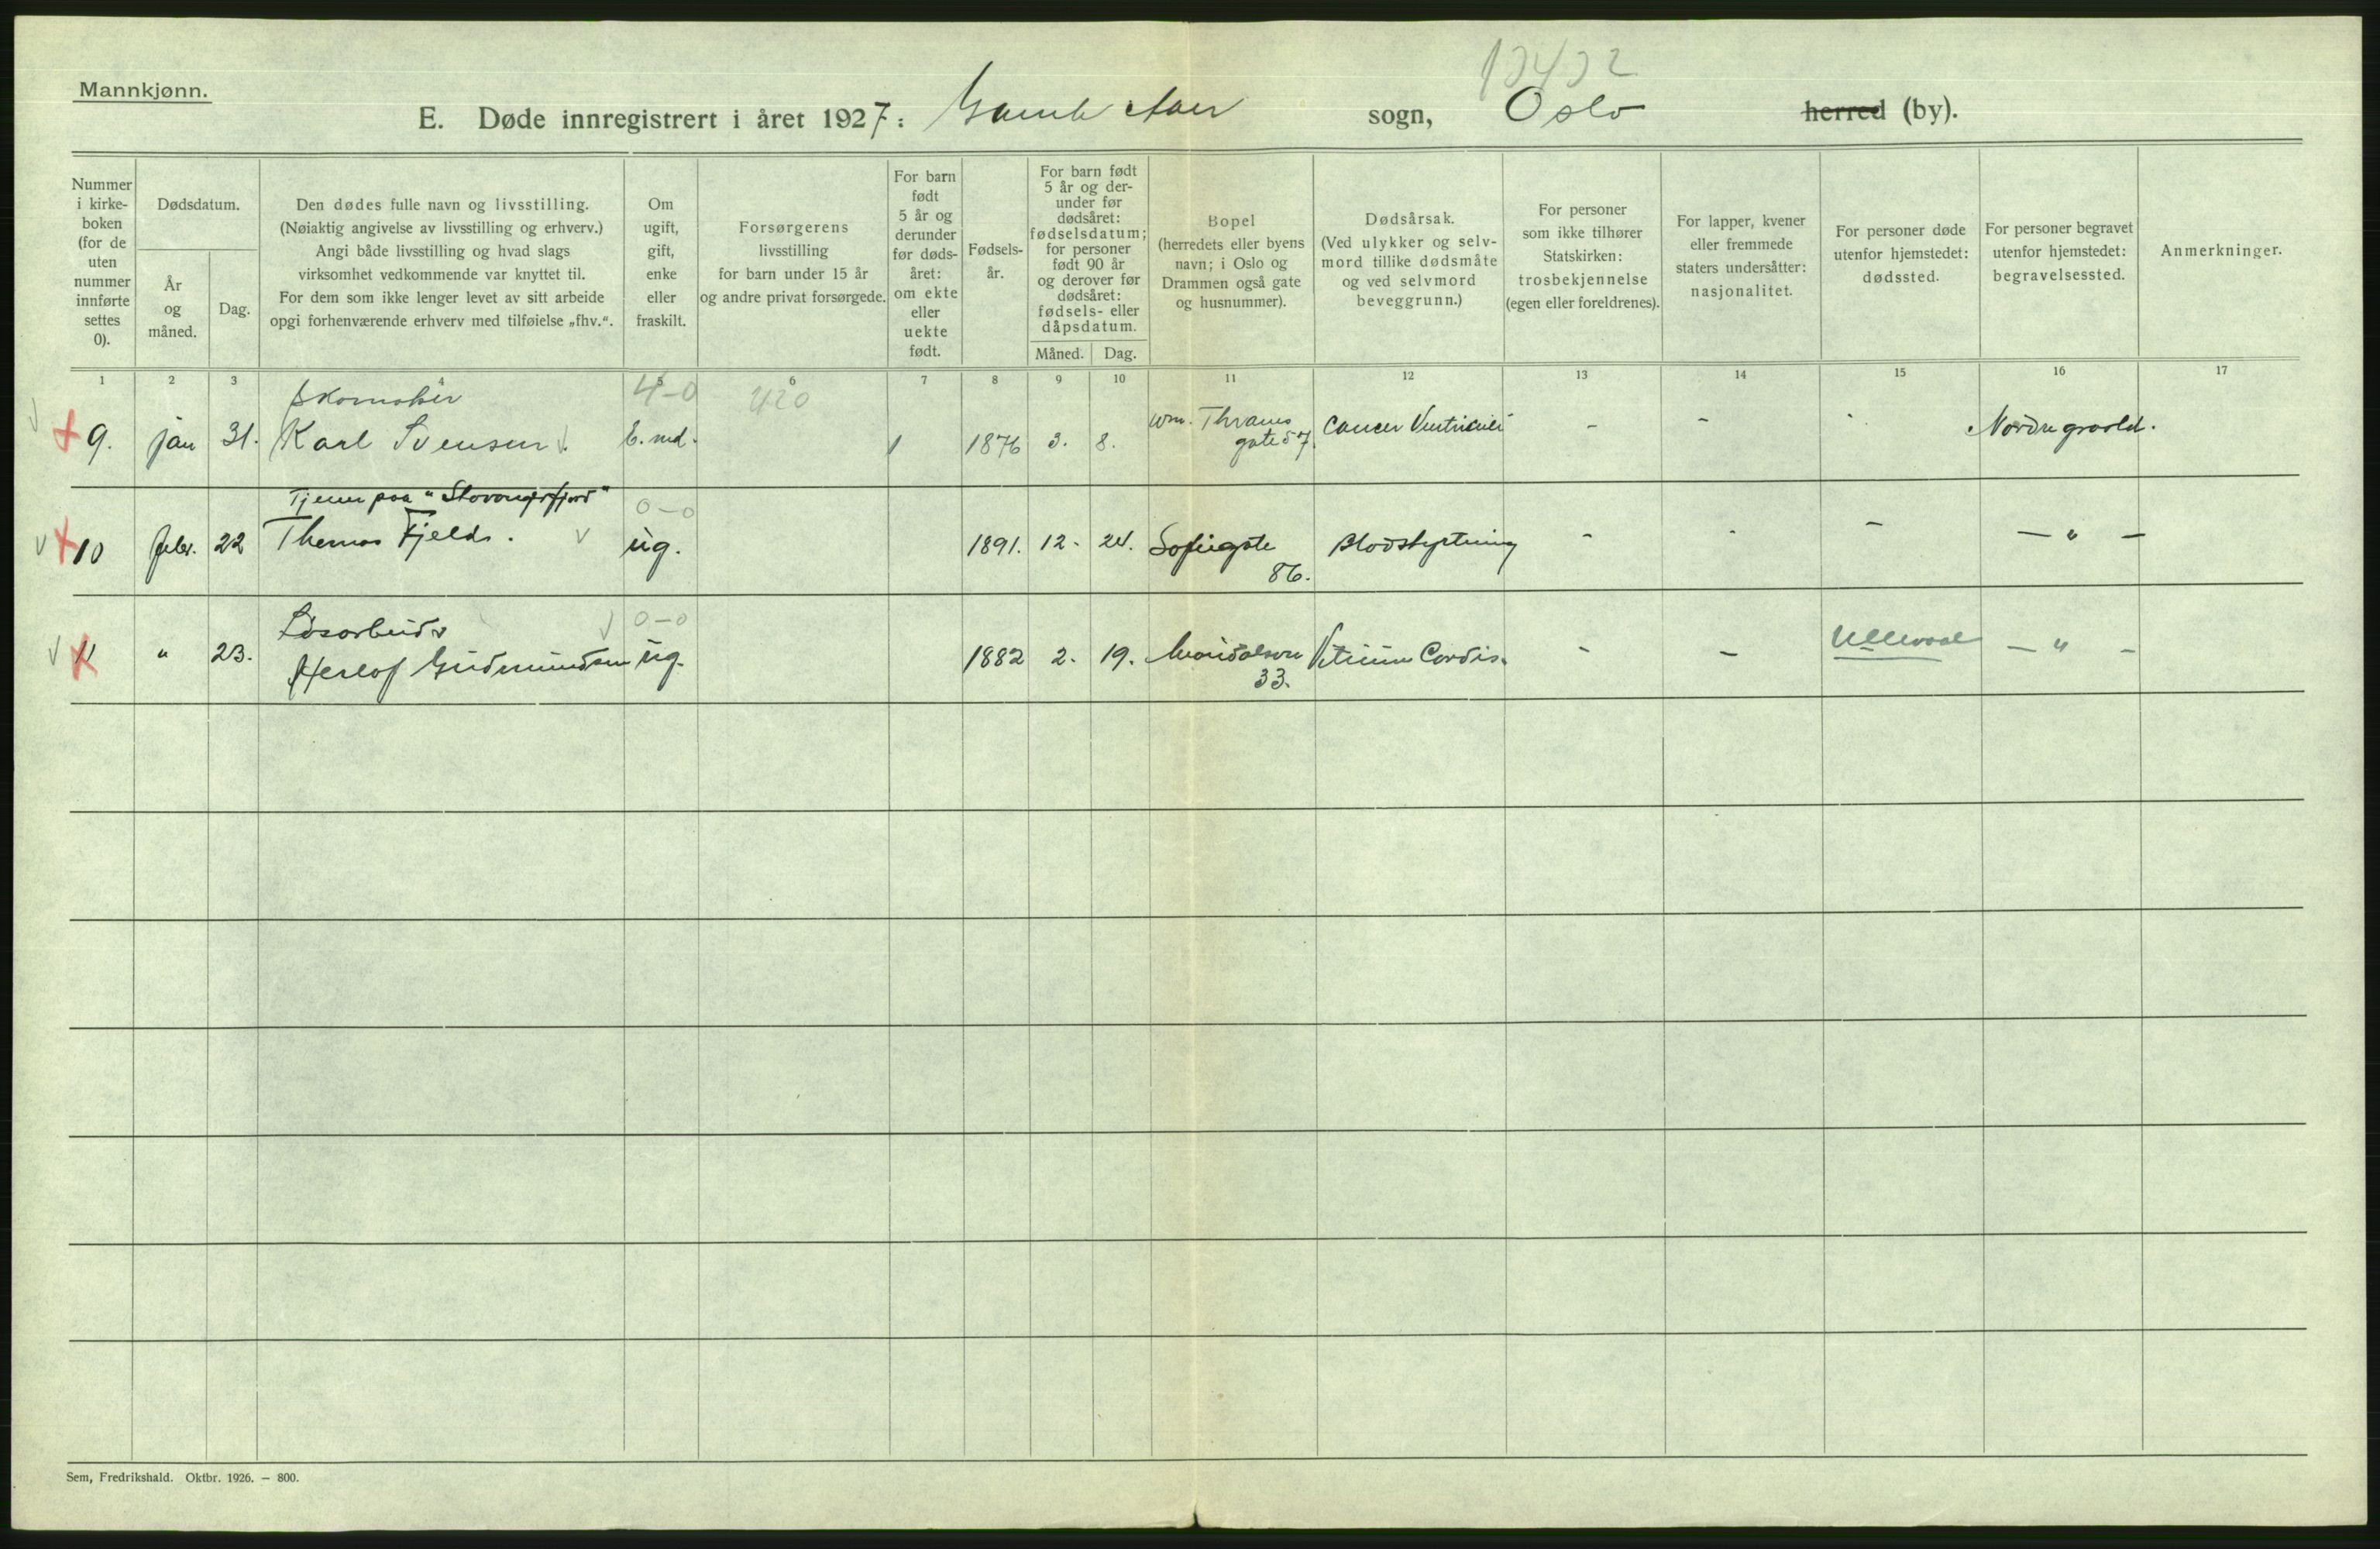 Mannkjønn.
E. Døde innregistrert i året 1927: Gamle Aker sogn, Oslo herred (by).
Nummer
i kirke-
boken
(for de
uten
nummer
innførte
settes
0).
Dødsdatum.
År
og
måned.
Dag.
Den dødes fulle navn og livsstilling.
(Nøiaktig angivelse av livsstilling og erhverv.)
Angi både livsstilling og hvad slags
virksomhet vedkommende var knyttet til.
For dem som ikke lenger levet av sitt arbeide
opgi forhenværende erhverv med tilføielse „fhv.“.
Om
ugift,
gift,
enke
eller
fraskilt.
Forsørgerens
livsstilling
for barn under 15 år
og andre privat forsørgede.
For barn
født
5 år og
derunder
før døds-
året:
om ekte
eller
uekte
født.
Fødsels-
år.
For barn født
5 år og der-
under før
dødsåret:
fødselsdatum;
for personer
født 90 år
og derover før
dødsåret:
fødsels- eller
dåpsdatum.
Måned. Dag.
Bopel
(herredets eller byens
navn; i Oslo og
Drammen også gate
og husnummer).
Dødsårsak.
(Ved ulykker og selv-
mord tillike dødsmåte
og ved selvmord
beveggrunn.)
For personer
som ikke tilhører
Statskirken:
trosbekjennelse
(egen eller foreldrenes).
For lapper, kvener
eller fremmede
staters undersåtter:
nasjonalitet.
For personer døde
utenfor hjemstedet:
dødssted.
For personer begravet
utenfor hjemstedet:
begravelsessted.
Anmerkninger.
1 2 3 4 5 6 7 8 9 10 11 12 13 14 15 16 17
Skomaker 4-0 420
9. jan 31. Karl Svensen E. md. 1876 3. 8. Wm. Thranes
gate 57. Cancer Ventriculi - - Nordre gravld.
Tjener paa "Stavangerfjord" 0-0
10 febr. 22 Thomas Fjeld. ug. 1891. 12. 24. Sofiegate
86. Blodstyrtning - - - — " —
Løsarbeider 0-0
11 " 23. Herlof Gudmundsen ug. 1882 2. 19. Maridalsvn
33. Vitium Cordis. - - Ullevaal — " —
Sem, Fredrikshald. Oktbr. 1926. — 800.